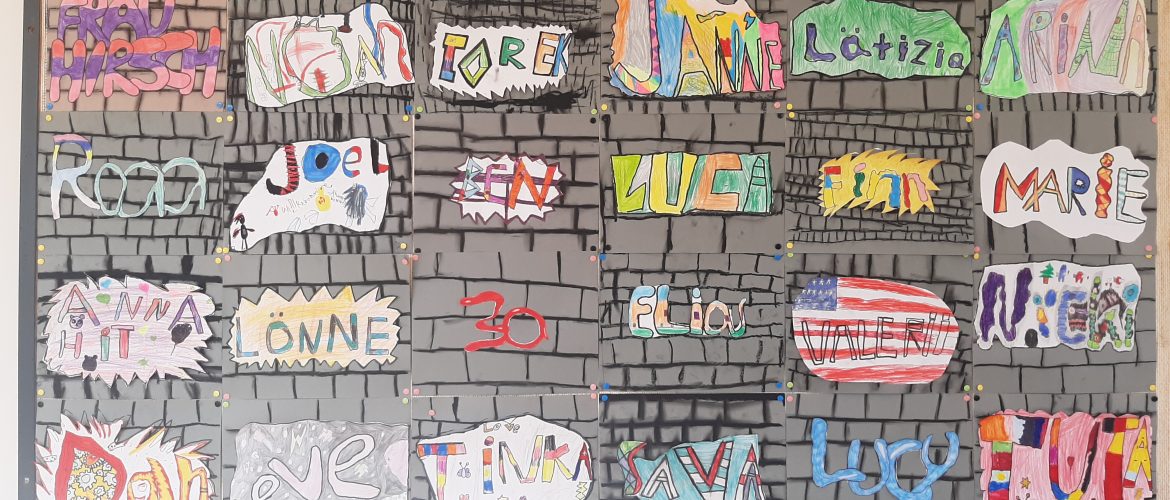 FRAU
HIRSCH
TOREK
JANNE
Lätizia
ARINA
Roan
JOEL
BEN
LUCA
Finn
MARIE
ANNA
HIT
LÖNNE
30
ELiaS
VALERIO
Dan
eve
Love
TiNKA
SAVA
Lucy